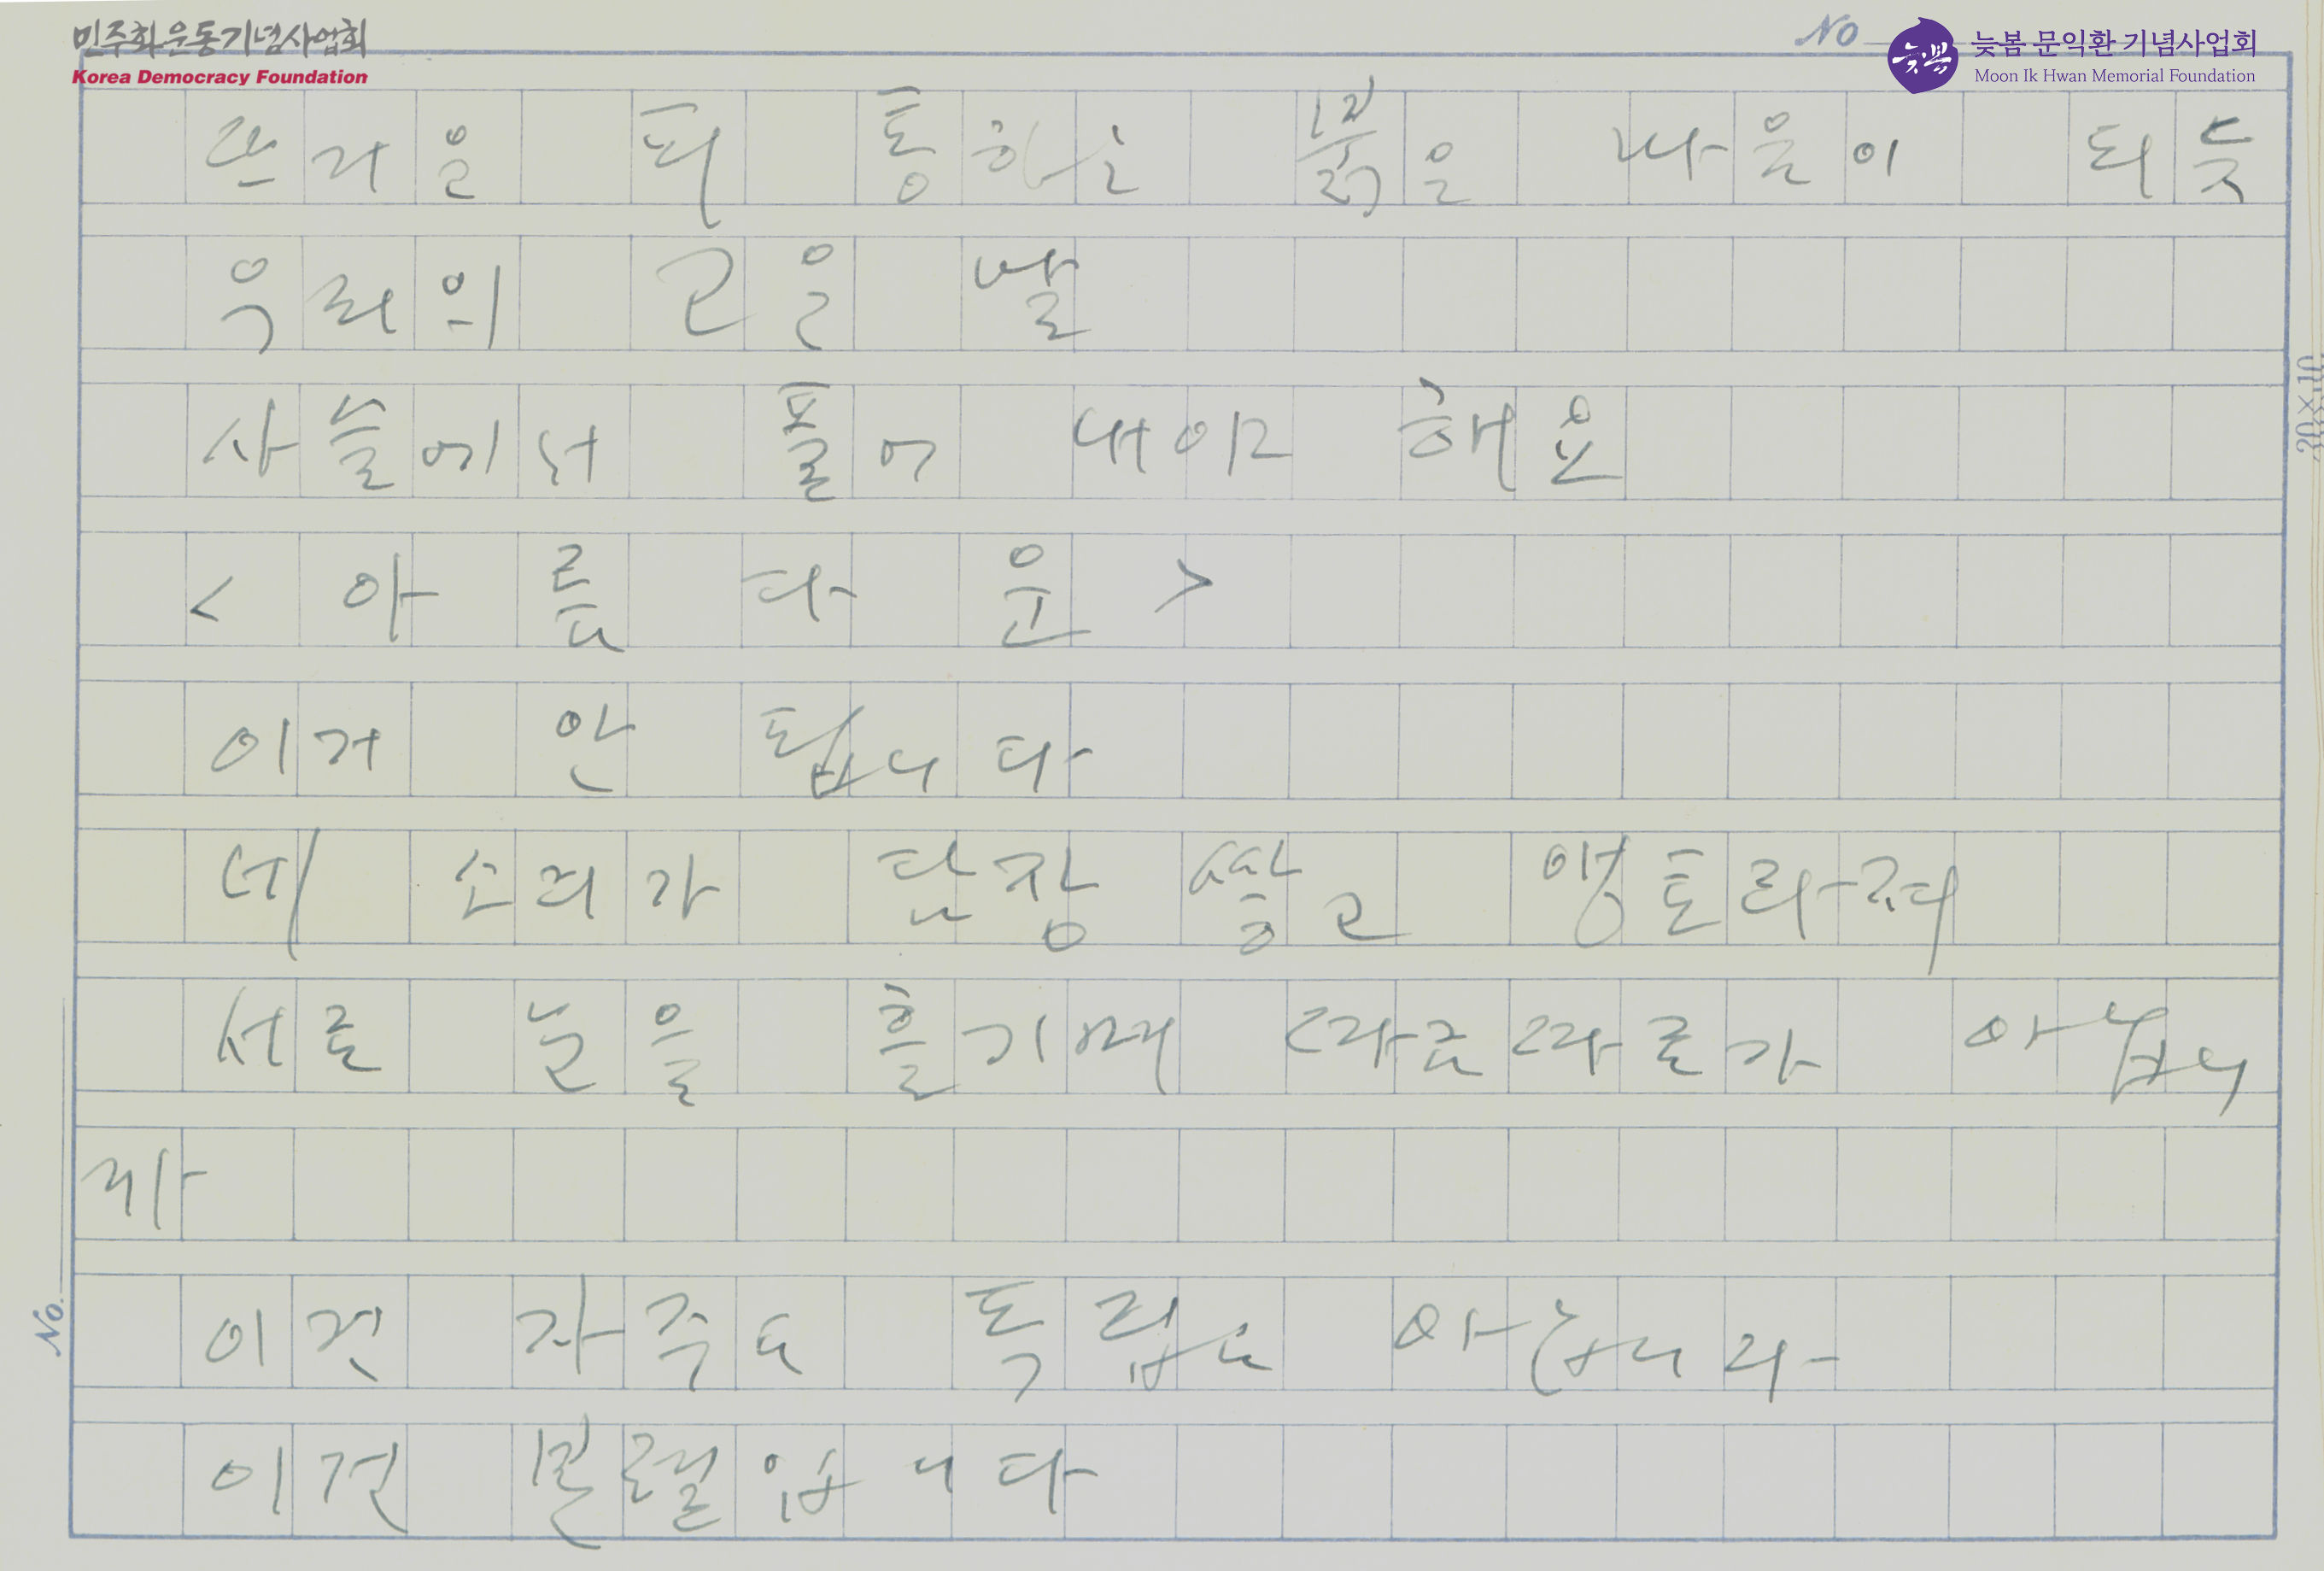 민주화운동기념사업회
Korea Democracy Foundation
No
늦봄
늦봄 문익환 기념사업회
Moon Ik Hwan Memorial Foundation
피 통하는 붉은 마음이 되듯
우리의 고운 말
사슬에서 풀어 내야 해요
< 아 름 다 운 >
이거 안 됩니다
네 소리가 담장 쌓고 앵토라져
서로 눈을 흘기며 따로따로가 아닙니
까
이건 자주도 독립도 아닙니다
이건 분렬입니다
20×10
No.